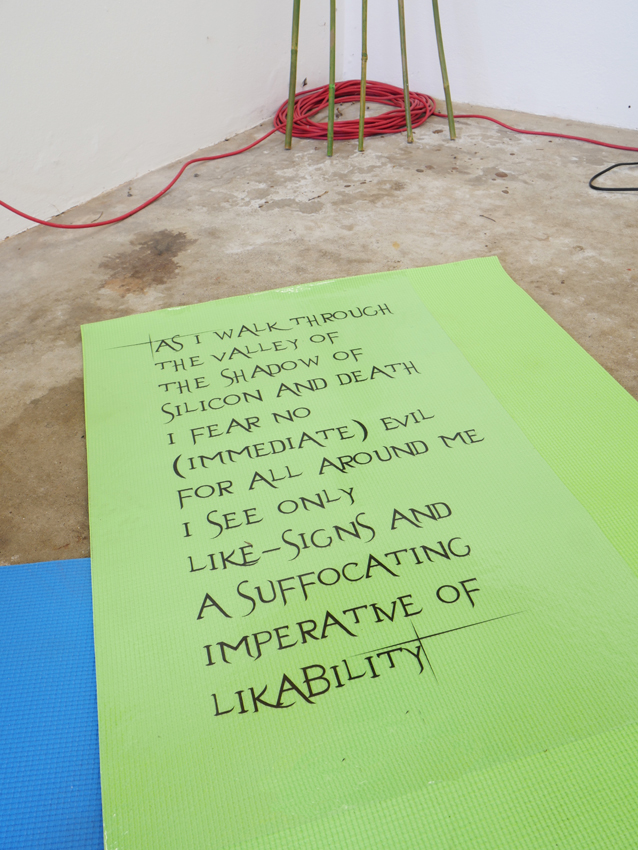 AS I WALK THROUGH
THE VALLEY OF
THE SHADOW OF
SILICON AND DEATH
I FEAR NO
(IMMEDIATE) EVIL
FOR ALL AROUND ME
I SEE ONLY
LIKE-SIGNS AND
A SUFFOCATING
IMPERATIVE OF
LIKABILITY